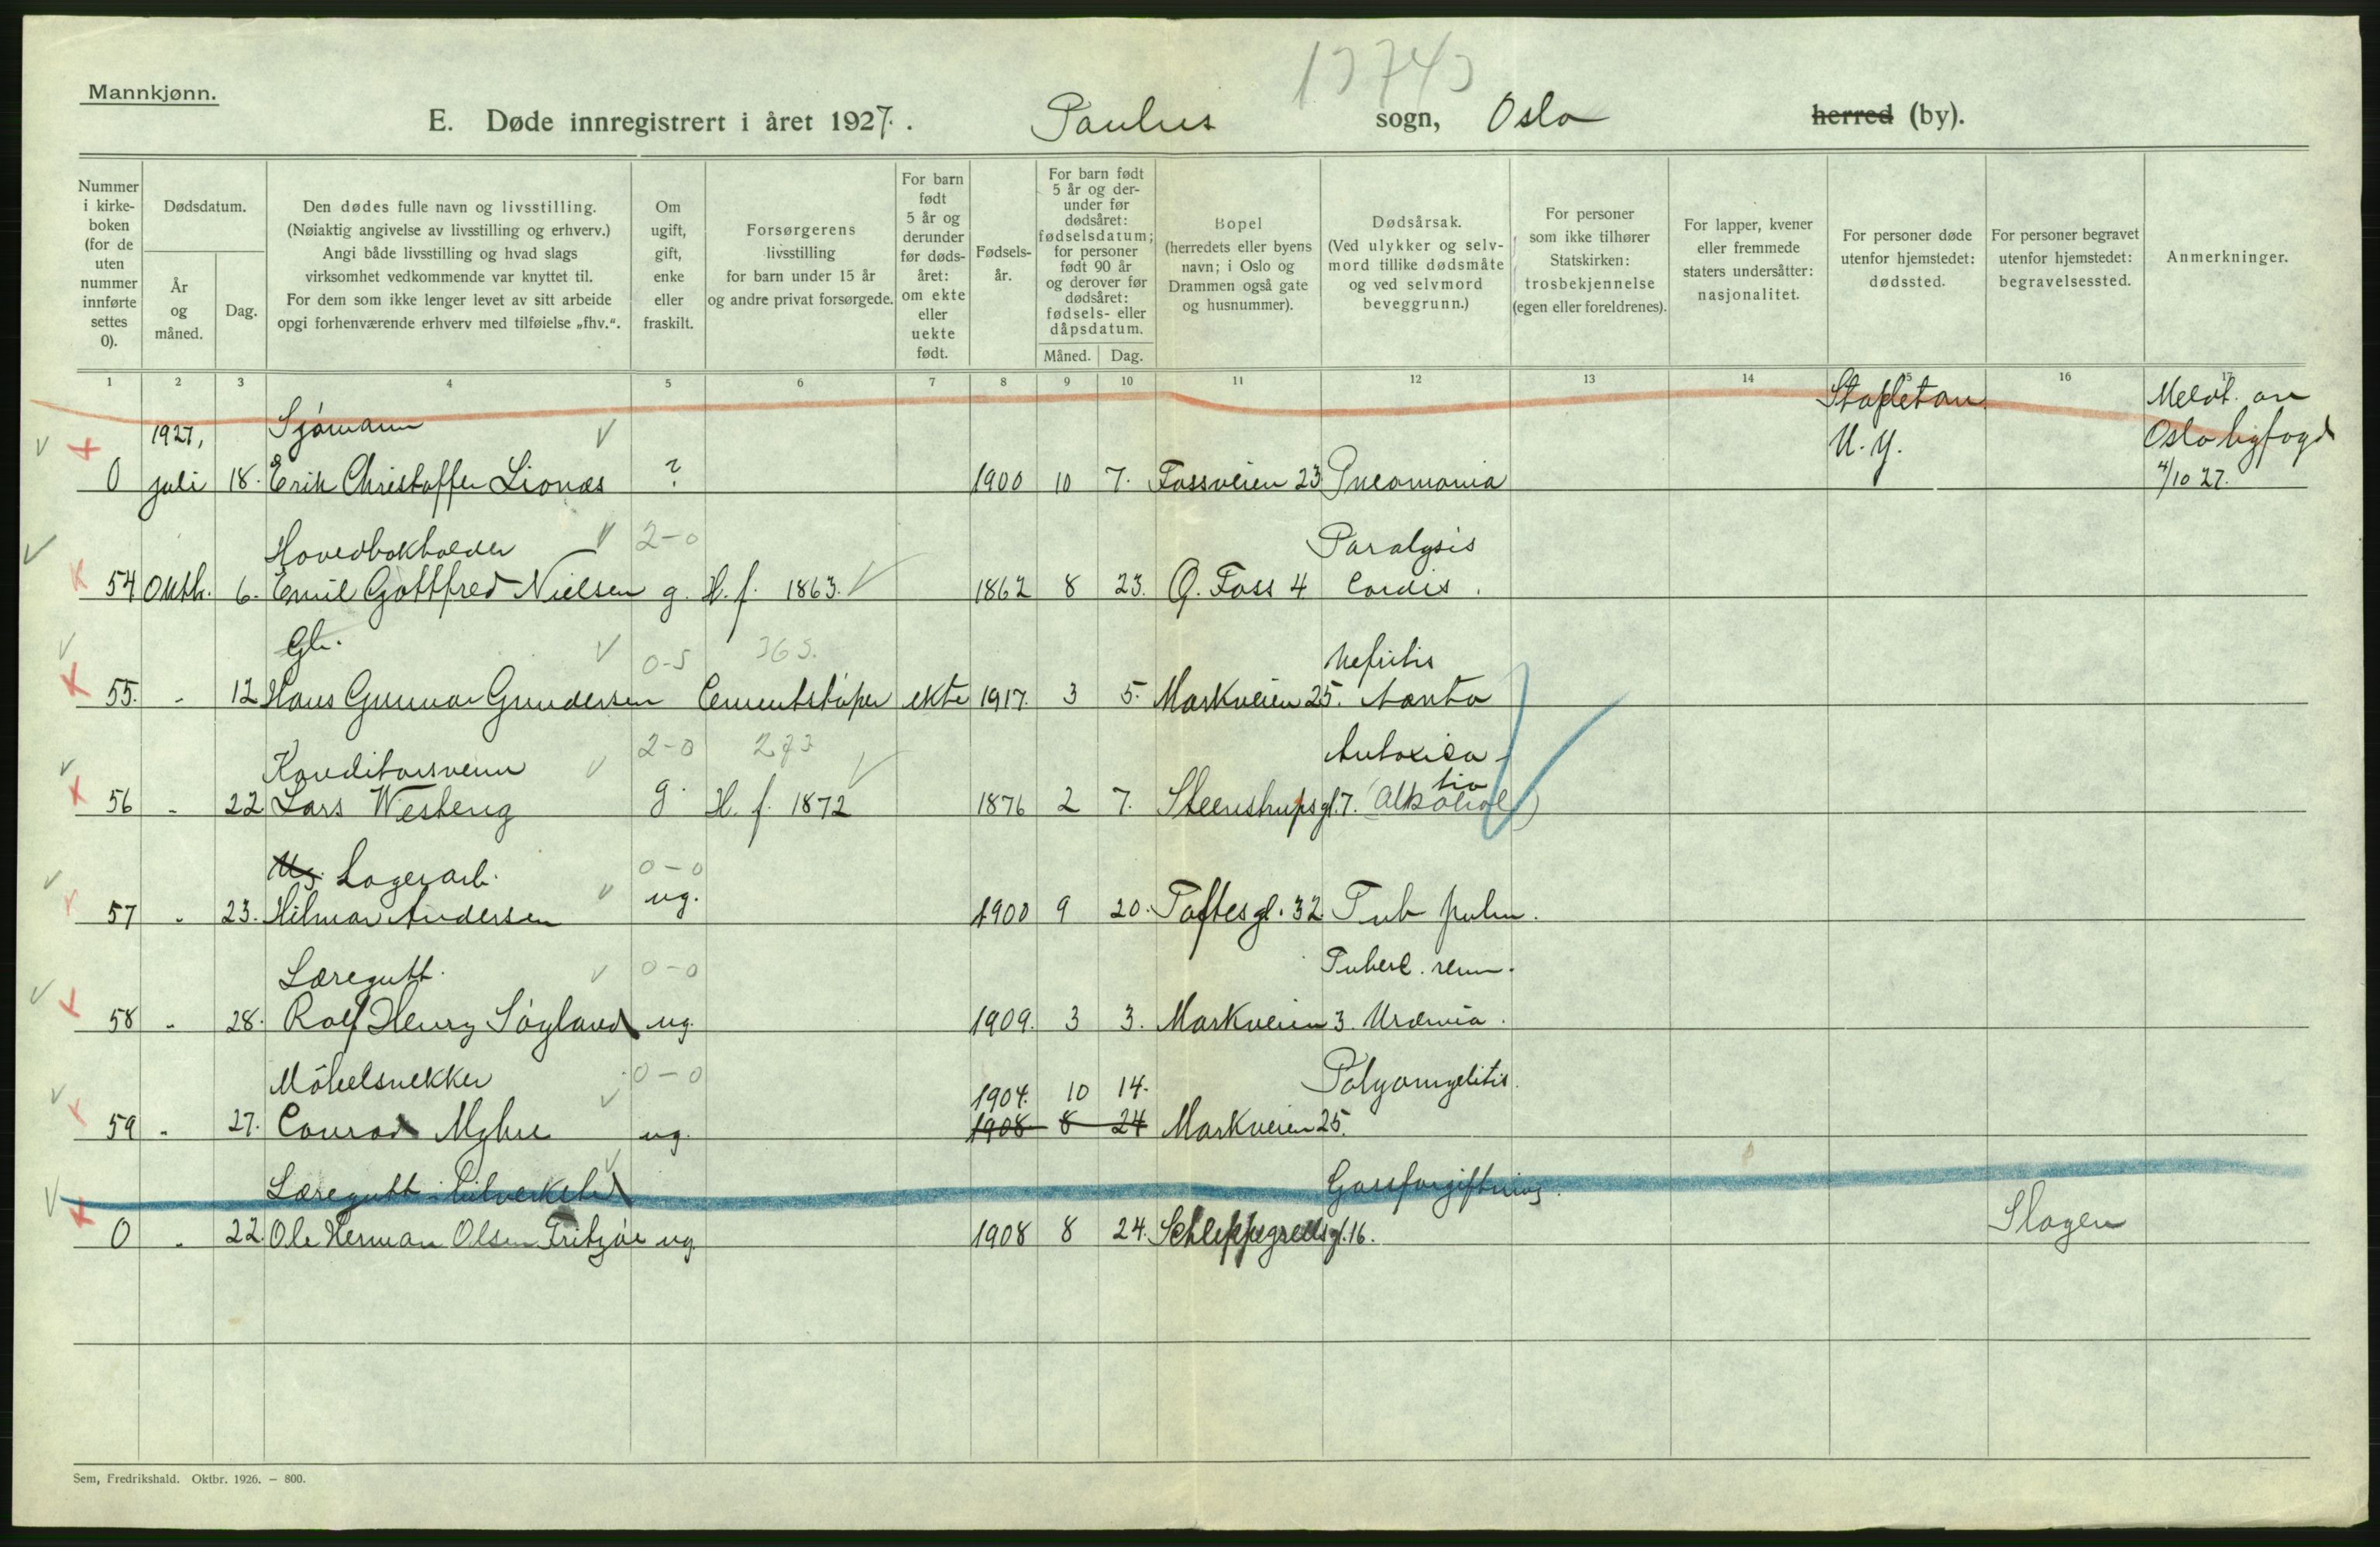 13743
Mannkjønn.
E. Døde innregistrert i året 1927. Paulus sogn, Oslo herred (by).
Nummer i kirkeboken (for de uten nummer innførte settes 0).
Dødsdatum.
År og måned.
Dag.
Den dødes fulle navn og livsstilling.
(Nøiaktig angivelse av livsstilling og erhverv.)
Angi både livsstilling og hvad slags
virksomhet vedkommende var knyttet til.
For dem som ikke lenger levet av sitt arbeide
opgi forhenværende erhverv med tilføielse „fhv.“.
Om ugift, gift, enke eller fraskilt.
Forsørgerens livsstilling for barn under 15 år og andre privat forsørgede.
For barn født 5 år og derunder før dødsåret: om ekte eller uekte født.
Fødselsår.
For barn født 5 år og derunder før dødsåret: fødselsdatum; for personer født 90 år og derover før dødsåret: fødsels- eller dåpsdatum.
Måned. Dag.
Bopel (herredets eller byens navn; i Oslo og Drammen også gate og husnummer).
Dødsårsak. (Ved ulykker og selvmord tillike dødsmåte og ved selvmord beveggrunn.)
For personer som ikke tilhører Statskirken: trosbekjennelse (egen eller foreldrenes).
For lapper, kvener eller fremmede staters undersåtter: nasjonalitet.
For personer døde utenfor hjemstedet: dødssted.
For personer begravet utenfor hjemstedet: begravelsessted.
Anmerkninger.
1 2 3 4 5 6 7 8 9 10 11 12 13 14 15 16 17
1927, Sjømann Stapletown N. Y. Meldt. av Oslo ligfogd
0 juli 18. Erik Christoffer Lionæs ? 1900 10 7. Fossveien 23 Pneomonia 4/10 27.
Hovedbokholder 2-0 Paralysis
54 Oktb. 6. Emil Gottfred Nielsen g. H. f. 1863. 1862 8 23. Q. Foss 4 Cordis.
Gl. 0-5 365. Nefritis
55. - 12 Hans Gunnar Gundersen Cementstøper ekte 1917. 3 5. Markveien 25.
Konditorsvenn 2-0 273
56 - 22 Lars Westeng g. H. f. 1872 1876 2 7. Steenstrupsgt. 7. (Alkohol)
Lagerarb. 0-0
57 - 23. Hilmar Andersen ug. 1900 9 20. Toftesgt. 32. Tub pulm.
Læregutt. 0-0 Tuberl. renn.
58 - 28. Rolf Henry Søyland ug. 1909. 3 3. Markveien 3. Uræmia.
Möbelsnekker 0-0 1904. 10 14. Polyomyelitis.
59 - 27. Conrad Myhre ug. 1908 8 24 Markveien 25.
Læregutt i bilverksted Gassforgiftning.
0 - 22. Ole Herman Olsen Fritzøe ug. 1908 8 24. Schleppegrellsgt. 16. Slagen
Sem, Fredrikshald. Oktbr. 1926. — 800.